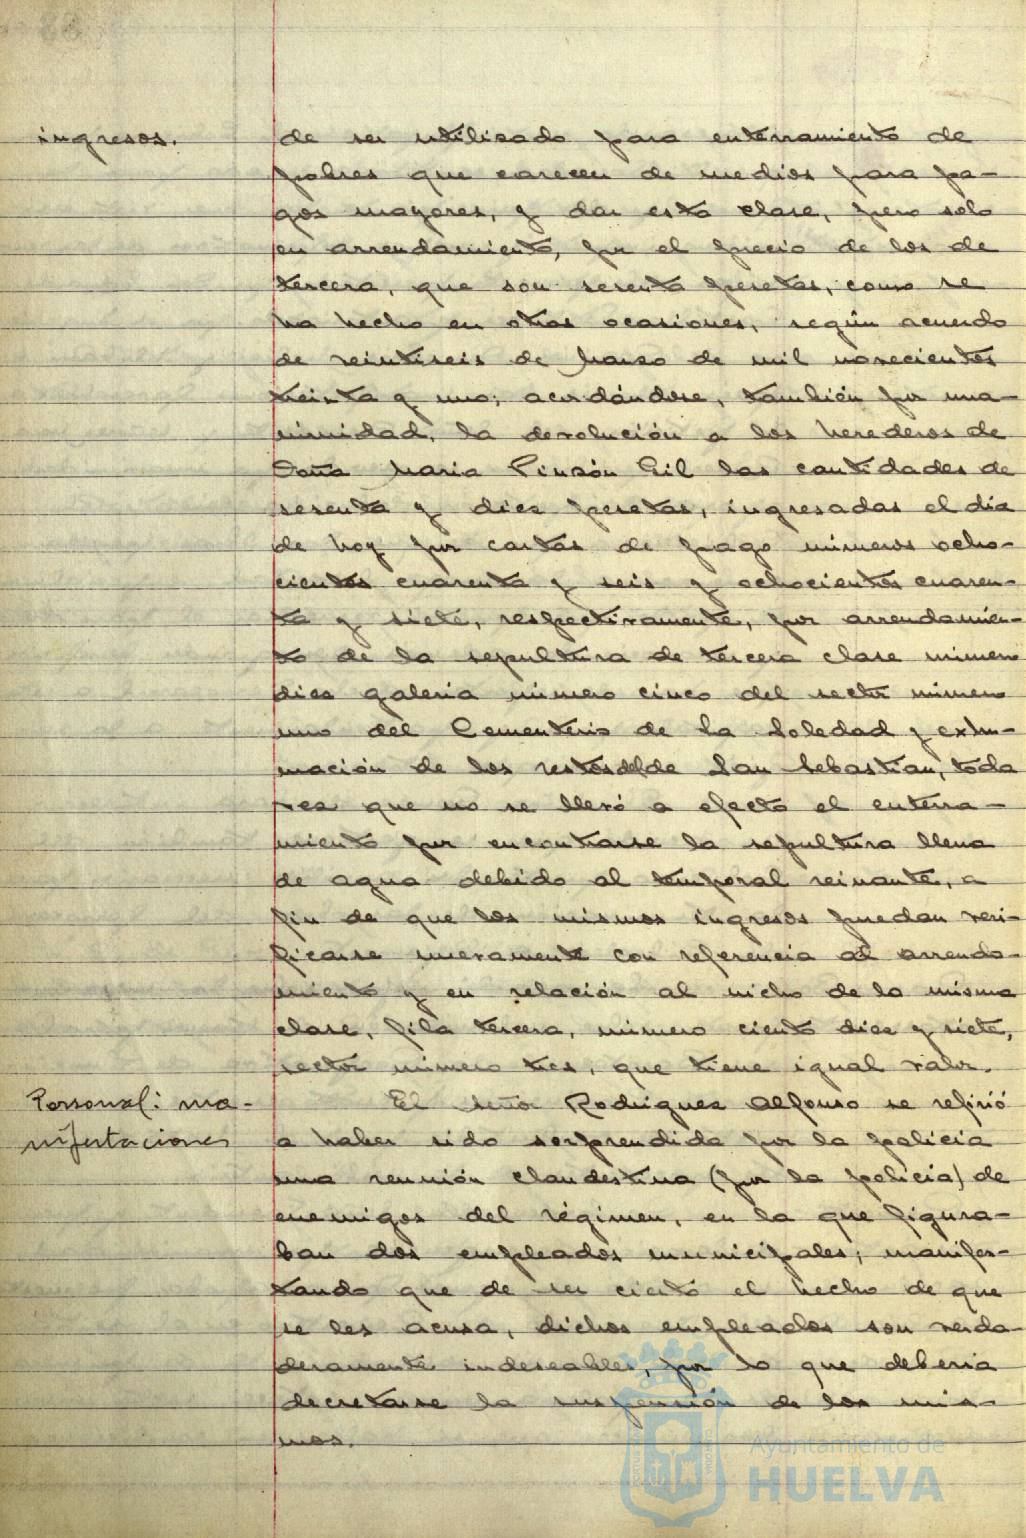 ingresos.
de ser utilizado para enterramiento de
pobres que carecen de medios para pa-
gos mayores, y dar esta clase, pero solo
en arrendamiento, por el precio de los de
tercera, que son sesenta pesetas, como se
ha hecho en otras ocasiones, según acuerdo
de veintiseis de Marzo de mil novecientos
treinta y uno; acordándose, también por una-
nimidad, la devolución a los herederos de
Doña María Pinzón Gil las cantidades de
sesenta y diez pesetas, ingresadas el día
de hoy por cartas de pago números ocho-
cientos cuarenta y seis y ochocientos cuaren-
ta y siete, respectivamente, por arrendamien-
to de la sepultura de tercera clase número
diez galeria número cinco del sector número
uno del Cementerio de la Soledad y exhu-
mación de los restos del de San Sebastian, toda
vez que no se llevó a efecto el enterra-
miento por encontrarse la sepultura llena
de agua debido al temporal reinante, a
fin de que los mismos ingresos puedan veri-
ficarse nuevamente con referencia al arrenda-
miento y en relación al nicho de la misma
clase, fila tercera, número ciento diez y siete,
sector número tres, que tiene igual valor.
Personal: ma-
nifestaciones
El señor Rodriguez Alfonso se refirió
a haber sido sorprendida por la policia
una reunión clandestina (por la policia) de
enemigos del régimen, en la que figura-
ban dos empleados municipales; manifes-
tando que de ser cierto el hecho de que
se les acusa, dichos empleados son verda-
deramente indeseables, por lo que debería
decretarse la suspensión de los mis-
mos.
Ayuntamiento de
HUELVA